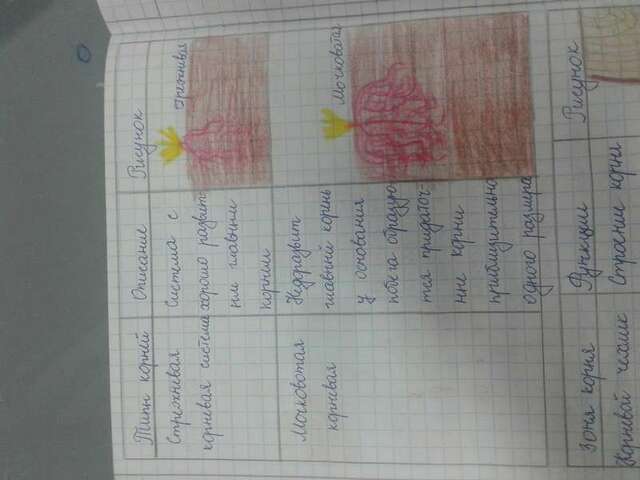 Типы корней Описание Рисунок
Стрежневая
корневая система
Система с
хорошо развит-
ым главным
корнем
Стрежневая
Мочковотая
корневая
Недоразвит
главный корень
у основания
побега образую-
тся придаточ-
ные корни
приблизительно
одного размера
Мочковатая
Зоня корня Функции Рисунок
Корневой чехлик Строение корня